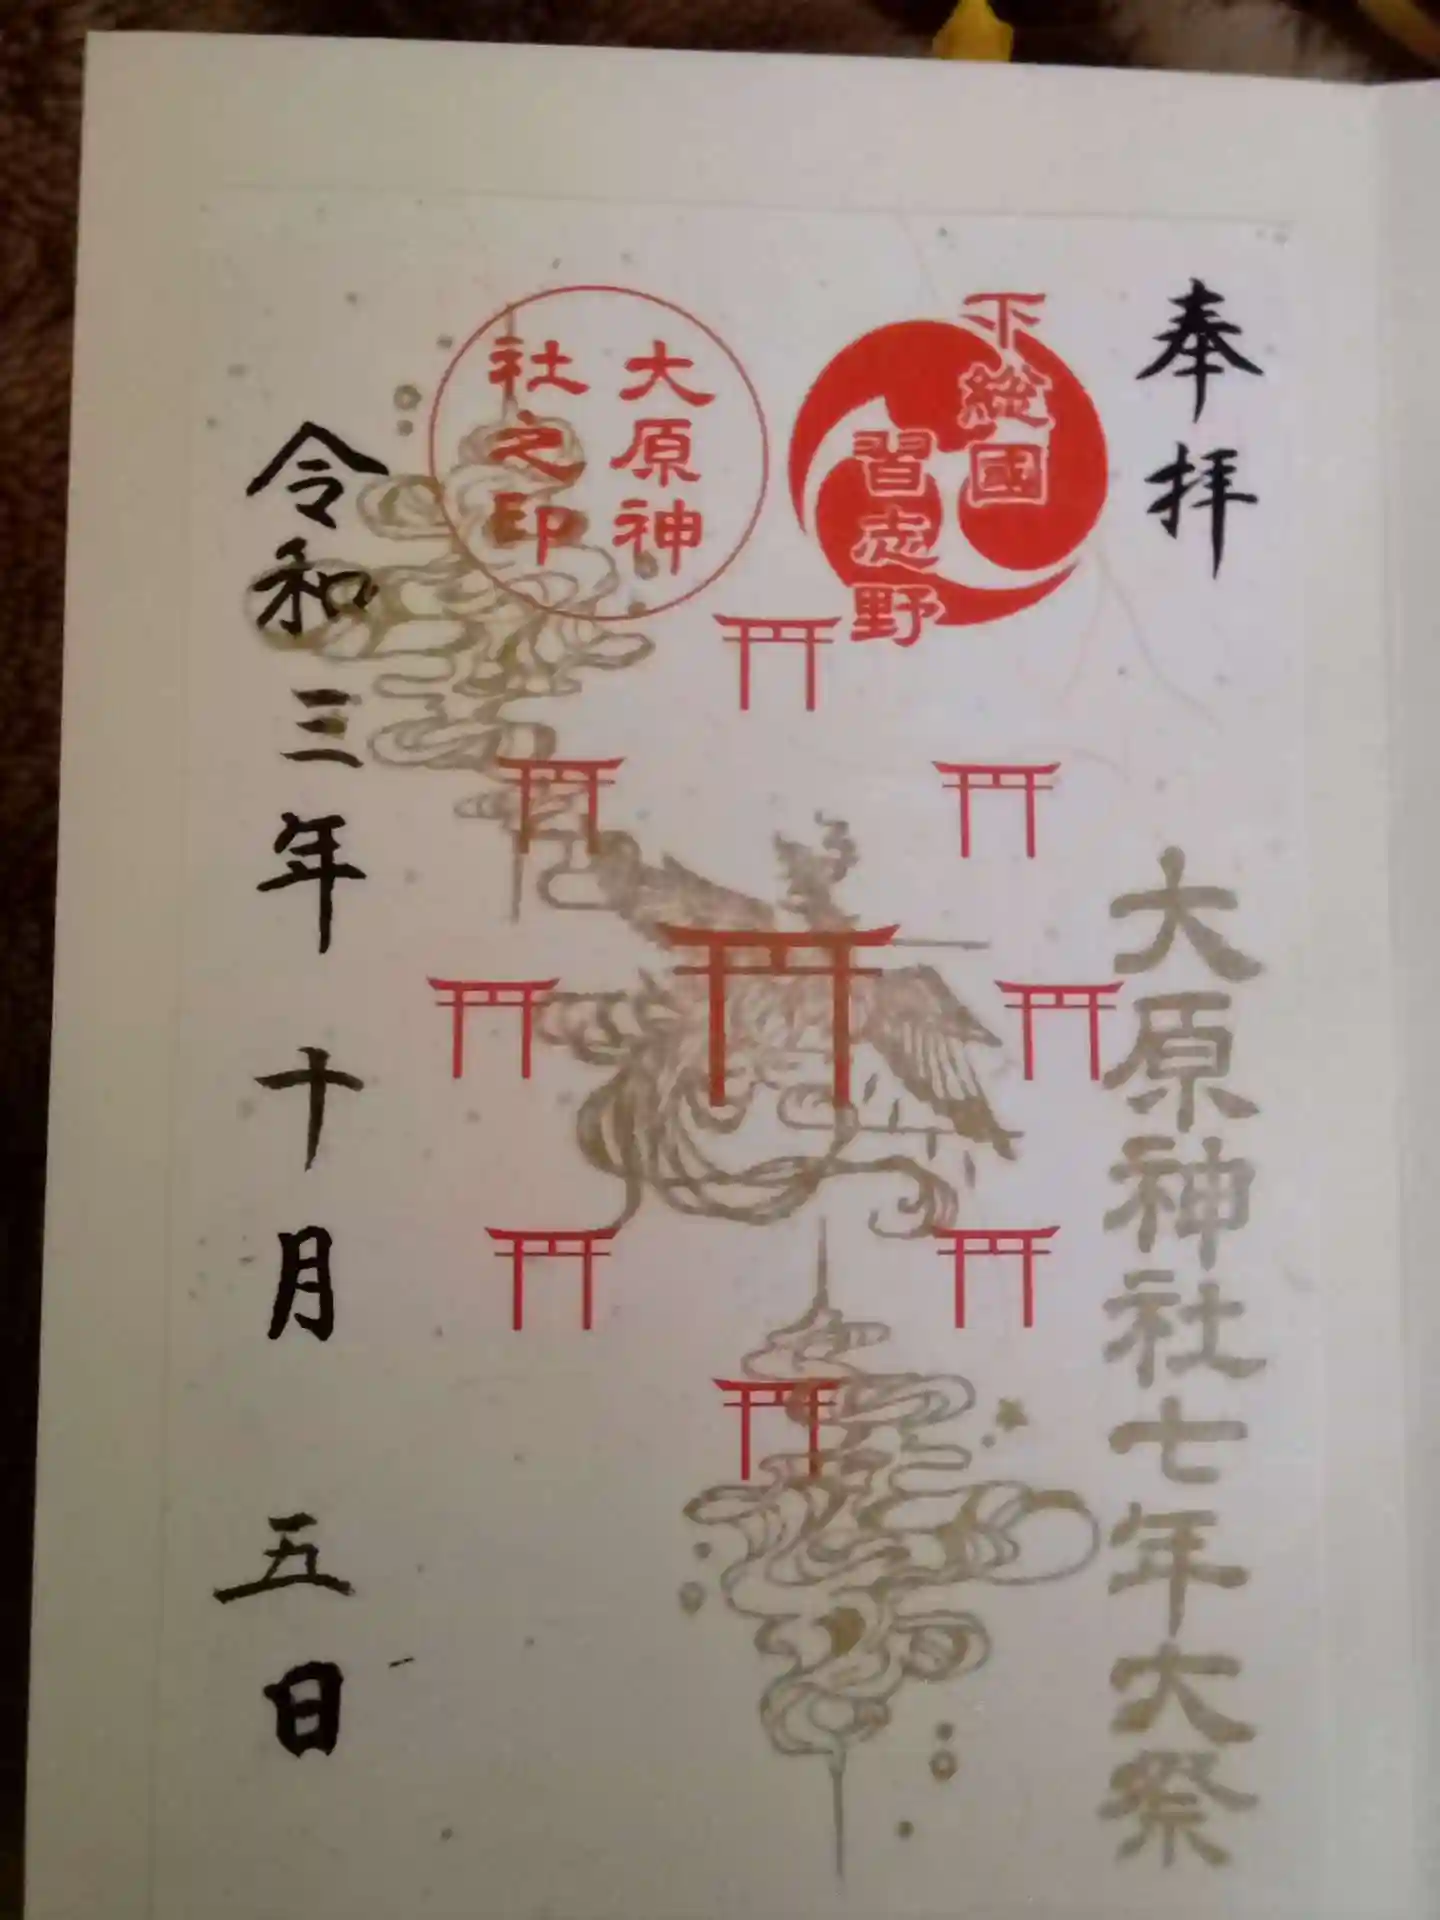 奉拝
下総國
習志野
大原神
社之印
大原神社七年大祭
令和三年十月五日